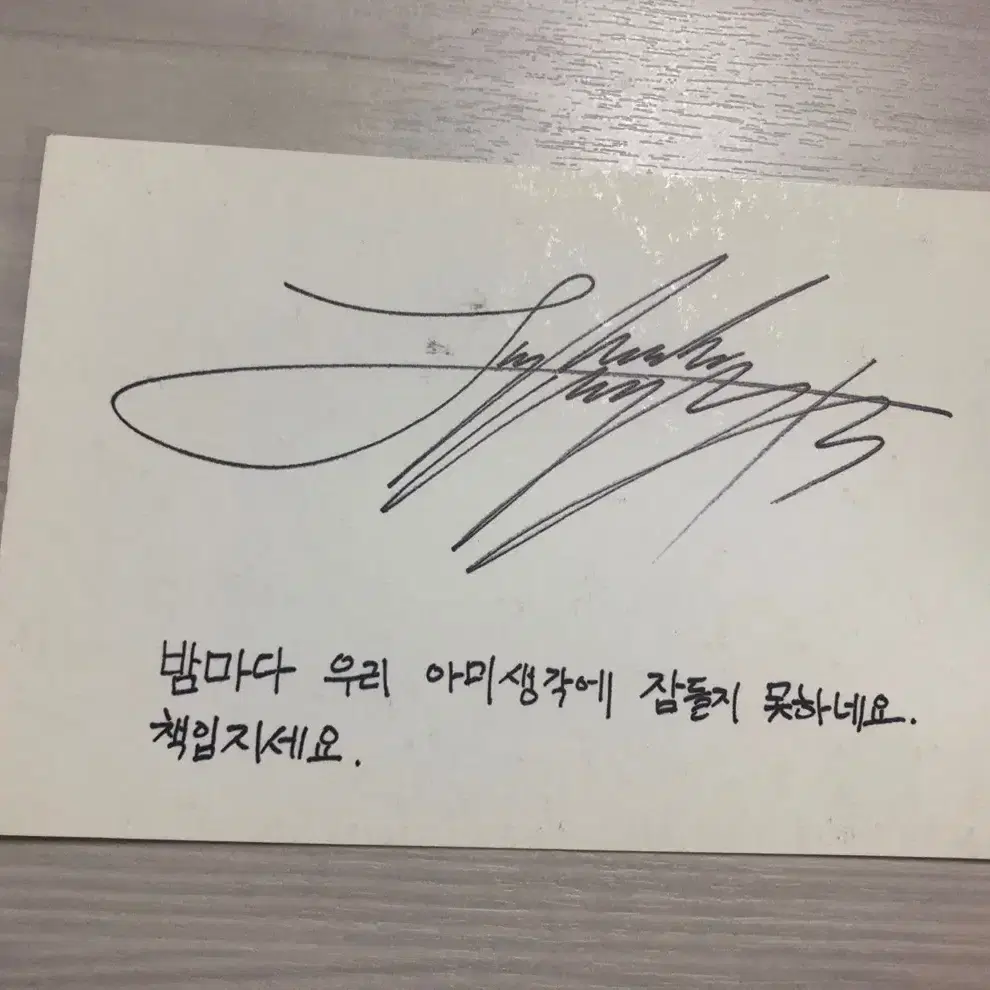 밤마다 우리 아미생각에 잠들지 못하네요.
책입지세요.